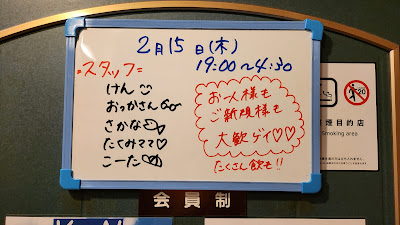 2月15日(木)
19:00〜4:30
=スタッフ=
けん
おっかさん
さかな
たくみママ♡
こーた
お一人様も
ご新規様も
大歓ゲイ♡♡
たくさん飲も!!
煙目的店
Smoking area
20
会員制